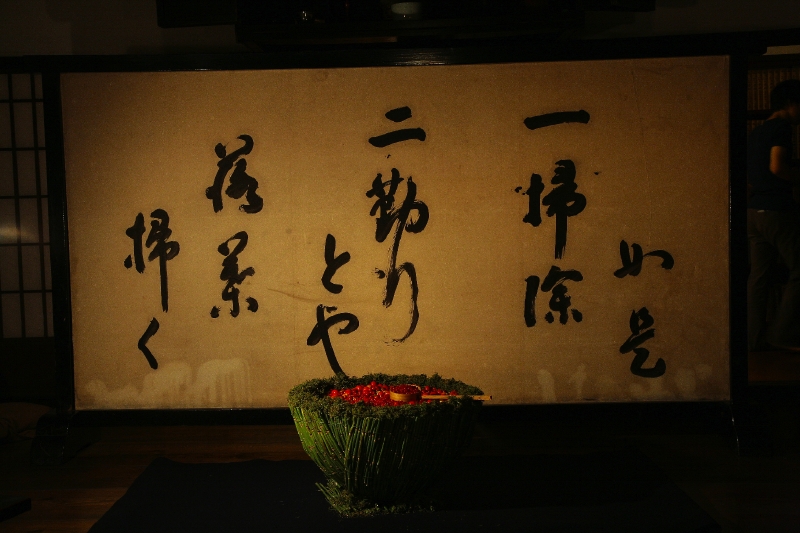 如是
一掃除
二勤り
とや
落葉
掃く